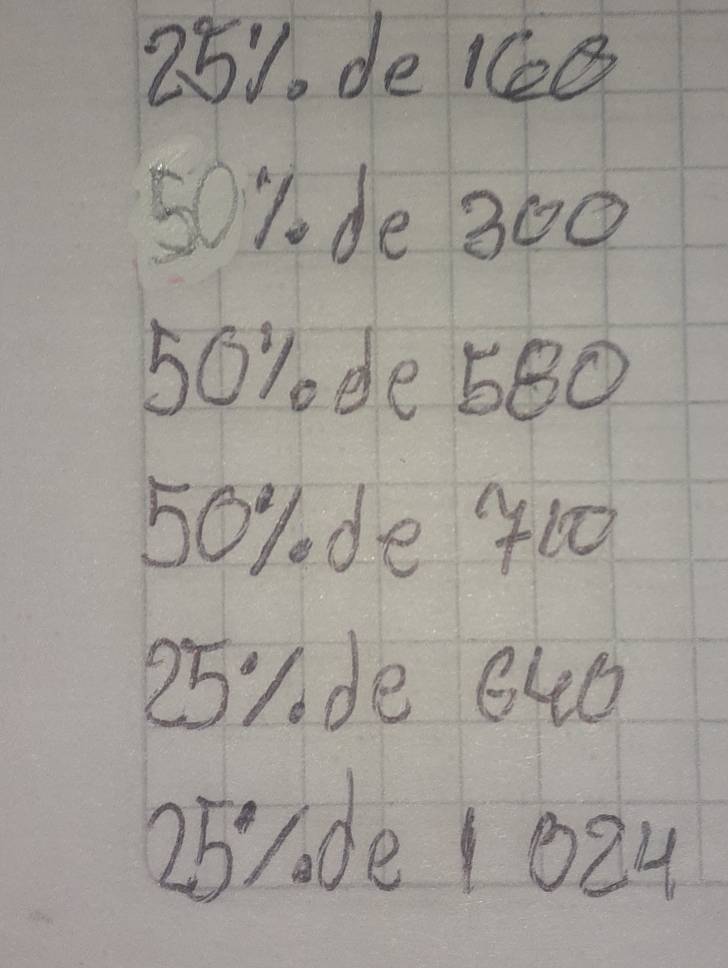 25% de 160
50% de 300
50% de 580
50% de 710
25% de 640
25% de 1 024